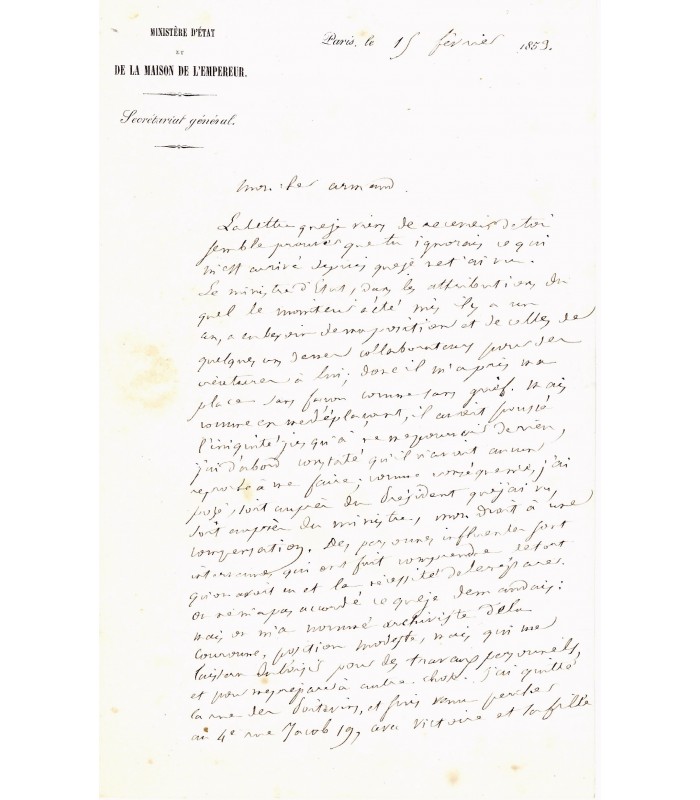 MINISTÈRE D'ÉTAT
ET
DE LA MAISON DE L'EMPEREUR.
Secrétariat général.
Paris, le 15 février 1853.
Mon cher armand.
La lettre que je viens de recevoir de toi
semble prouver que tu ignorais ce qui
m'est arrivé depuis que je ne t'ai vu.
Le ministre d'Etat, dans les attributions du
quel le moniteur a été mis il y a un
an, a eu besoin de ma position et de celles de
quelques uns de mes collaborateurs pour des
créatures à lui; donc il m'a pris ma
place sans façon comme sans grief. Mais
comme en me déplaçant, il avait poussé
l'iniquité jusqu'à ne me pourvoir de rien,
j'ai d'abord constaté qu'il n'avait aucun
reproche à me faire; comme conséquence, j'ai
posé, soit auprès du Président que j'ai vu,
soit auprès du ministre, mon droit à une
compensation. Des personnes influentes sont
intervenues qui ont fait comprendre le tort
qu'on avait eu et la nécessité de le réparer.
On ne m'a pas accordé ce que je demandais:
mais on m'a nommé archiviste de la
Couronne, position modeste, mais qui me
laisse du loisir pour des travaux personnels,
et pour me préparer à autre chose. J'ai quitté
la rue des Poitevins, et suis venu percher
au 4e rue Jacob 19, avec Victoire et sa fille